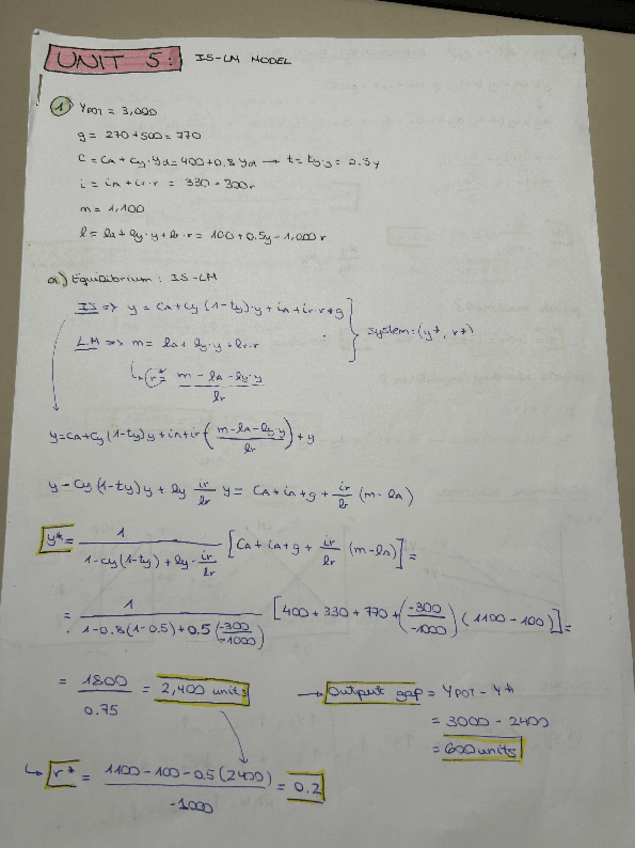 UNIT 5: IS-LM MODEL
1 YPOT = 3,000
g = 270 + 500 = 770
C = CA + Cy · Yd = 400 + 0.8 Yd → t = ty·y = 0.5y
i = iA + ir·r = 330 - 300r
m = 1,100
l = lA + ly·y + lr·r = 100 + 0.5y - 1,000 r
a) Equilibrium: IS-LM
IS => y = CA + Cy (1-ty)·y + iA + ir·r + g
LM => m = lA + ly·y + lr·r
system: (y*, r*)
↳ r* = (m - lA - ly·y) / lr
y = CA + Cy (1-ty) y + iA + ir ((m - lA - ly·y) / lr) + y
y - Cy (1-ty) y + ly ir/lr y = CA + iA + g + ir/lr (m - lA)
y* = 1 / (1 - cy (1-ty) + ly · ir/lr) [CA + iA + g + ir/lr (m - lA)] =
= 1 / (1 - 0.8 (1-0.5) + 0.5 (-300/-1000)) [400 + 330 + 770 + (-300/-1000) (1100 - 100)] =
= 1800 / 0.75 = 2,400 units
→ Output gap = YPOT - Y*
= 3000 - 2400
= 600 units
↳ r* = (1100 - 100 - 0.5 (2400)) / -1000 = 0.2